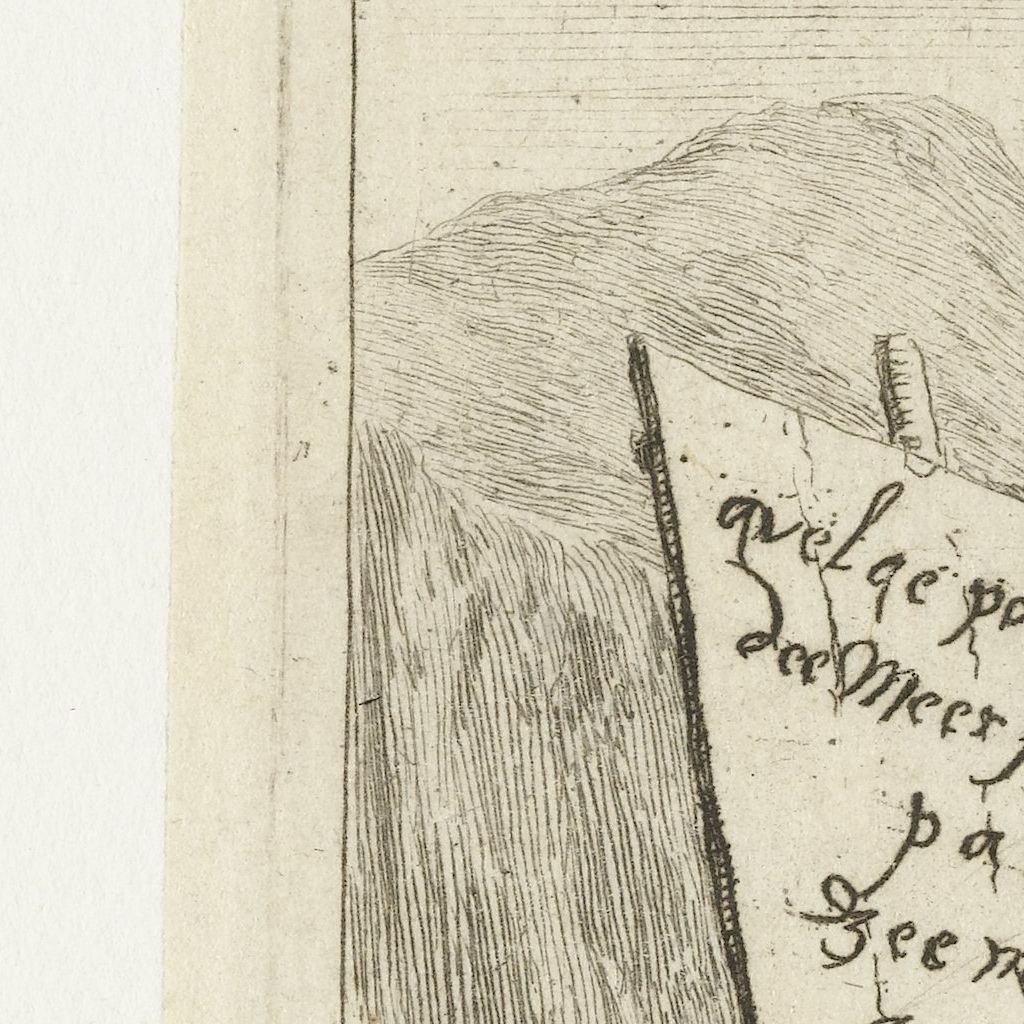 quelqe pa
dee Meer
pa
Zeem